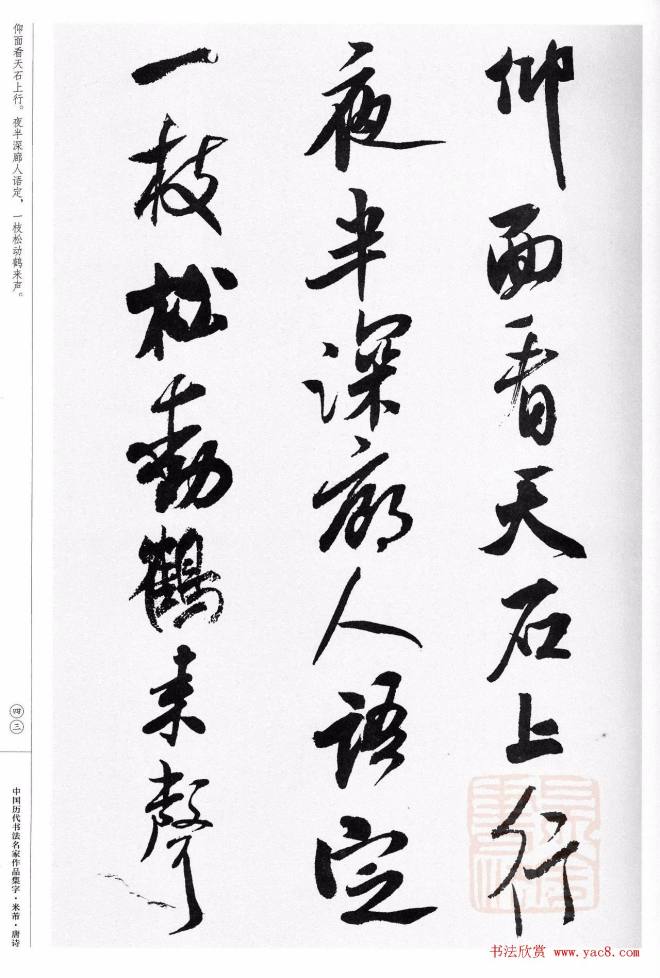 仰面看天石上行
夜半深廊人語定
一枝松動鶴來聲
仰面看天石上行。夜半深廊人语定，一枝松动鹤来声。
四三
中国历代书法名家作品集字·米芾·唐诗
书法欣赏 www.yac8.com